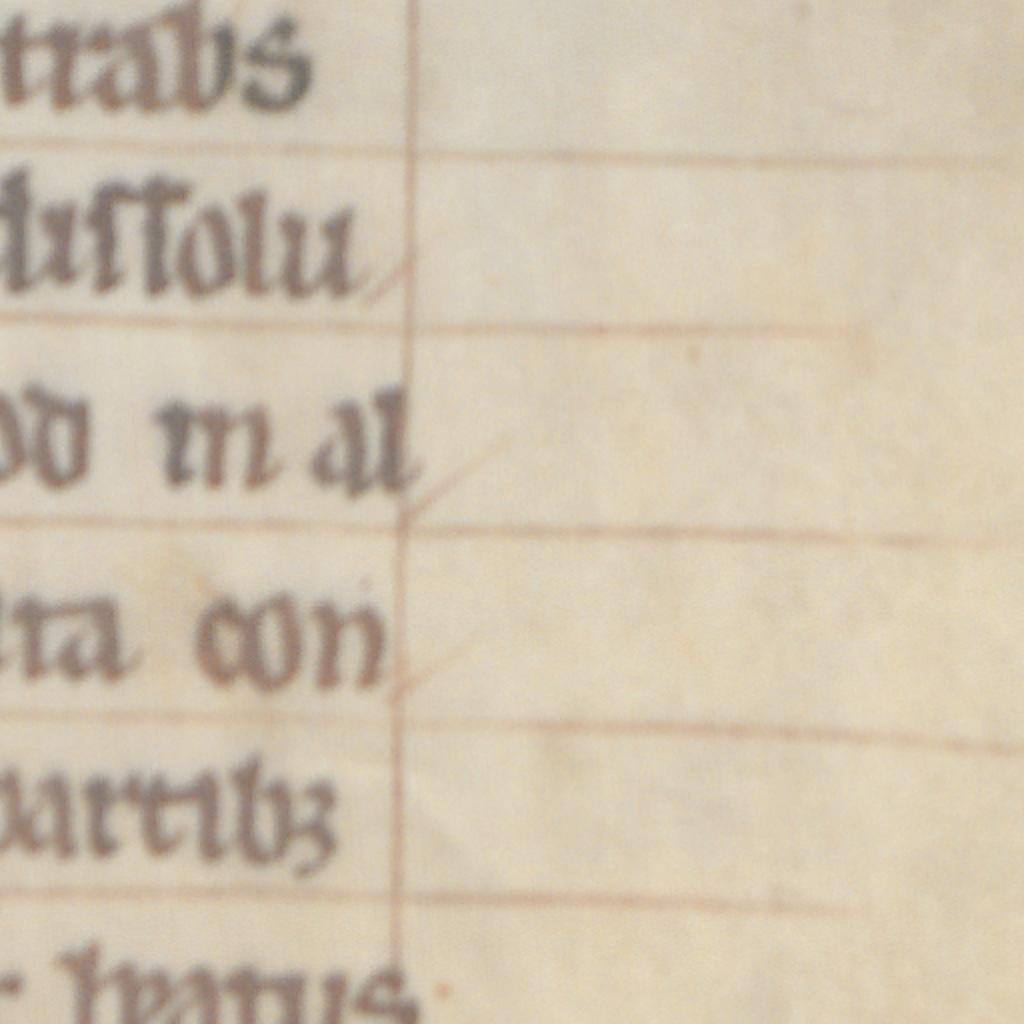 trabs
dissolu
od in al
ita con
partibꝫ
hyatus